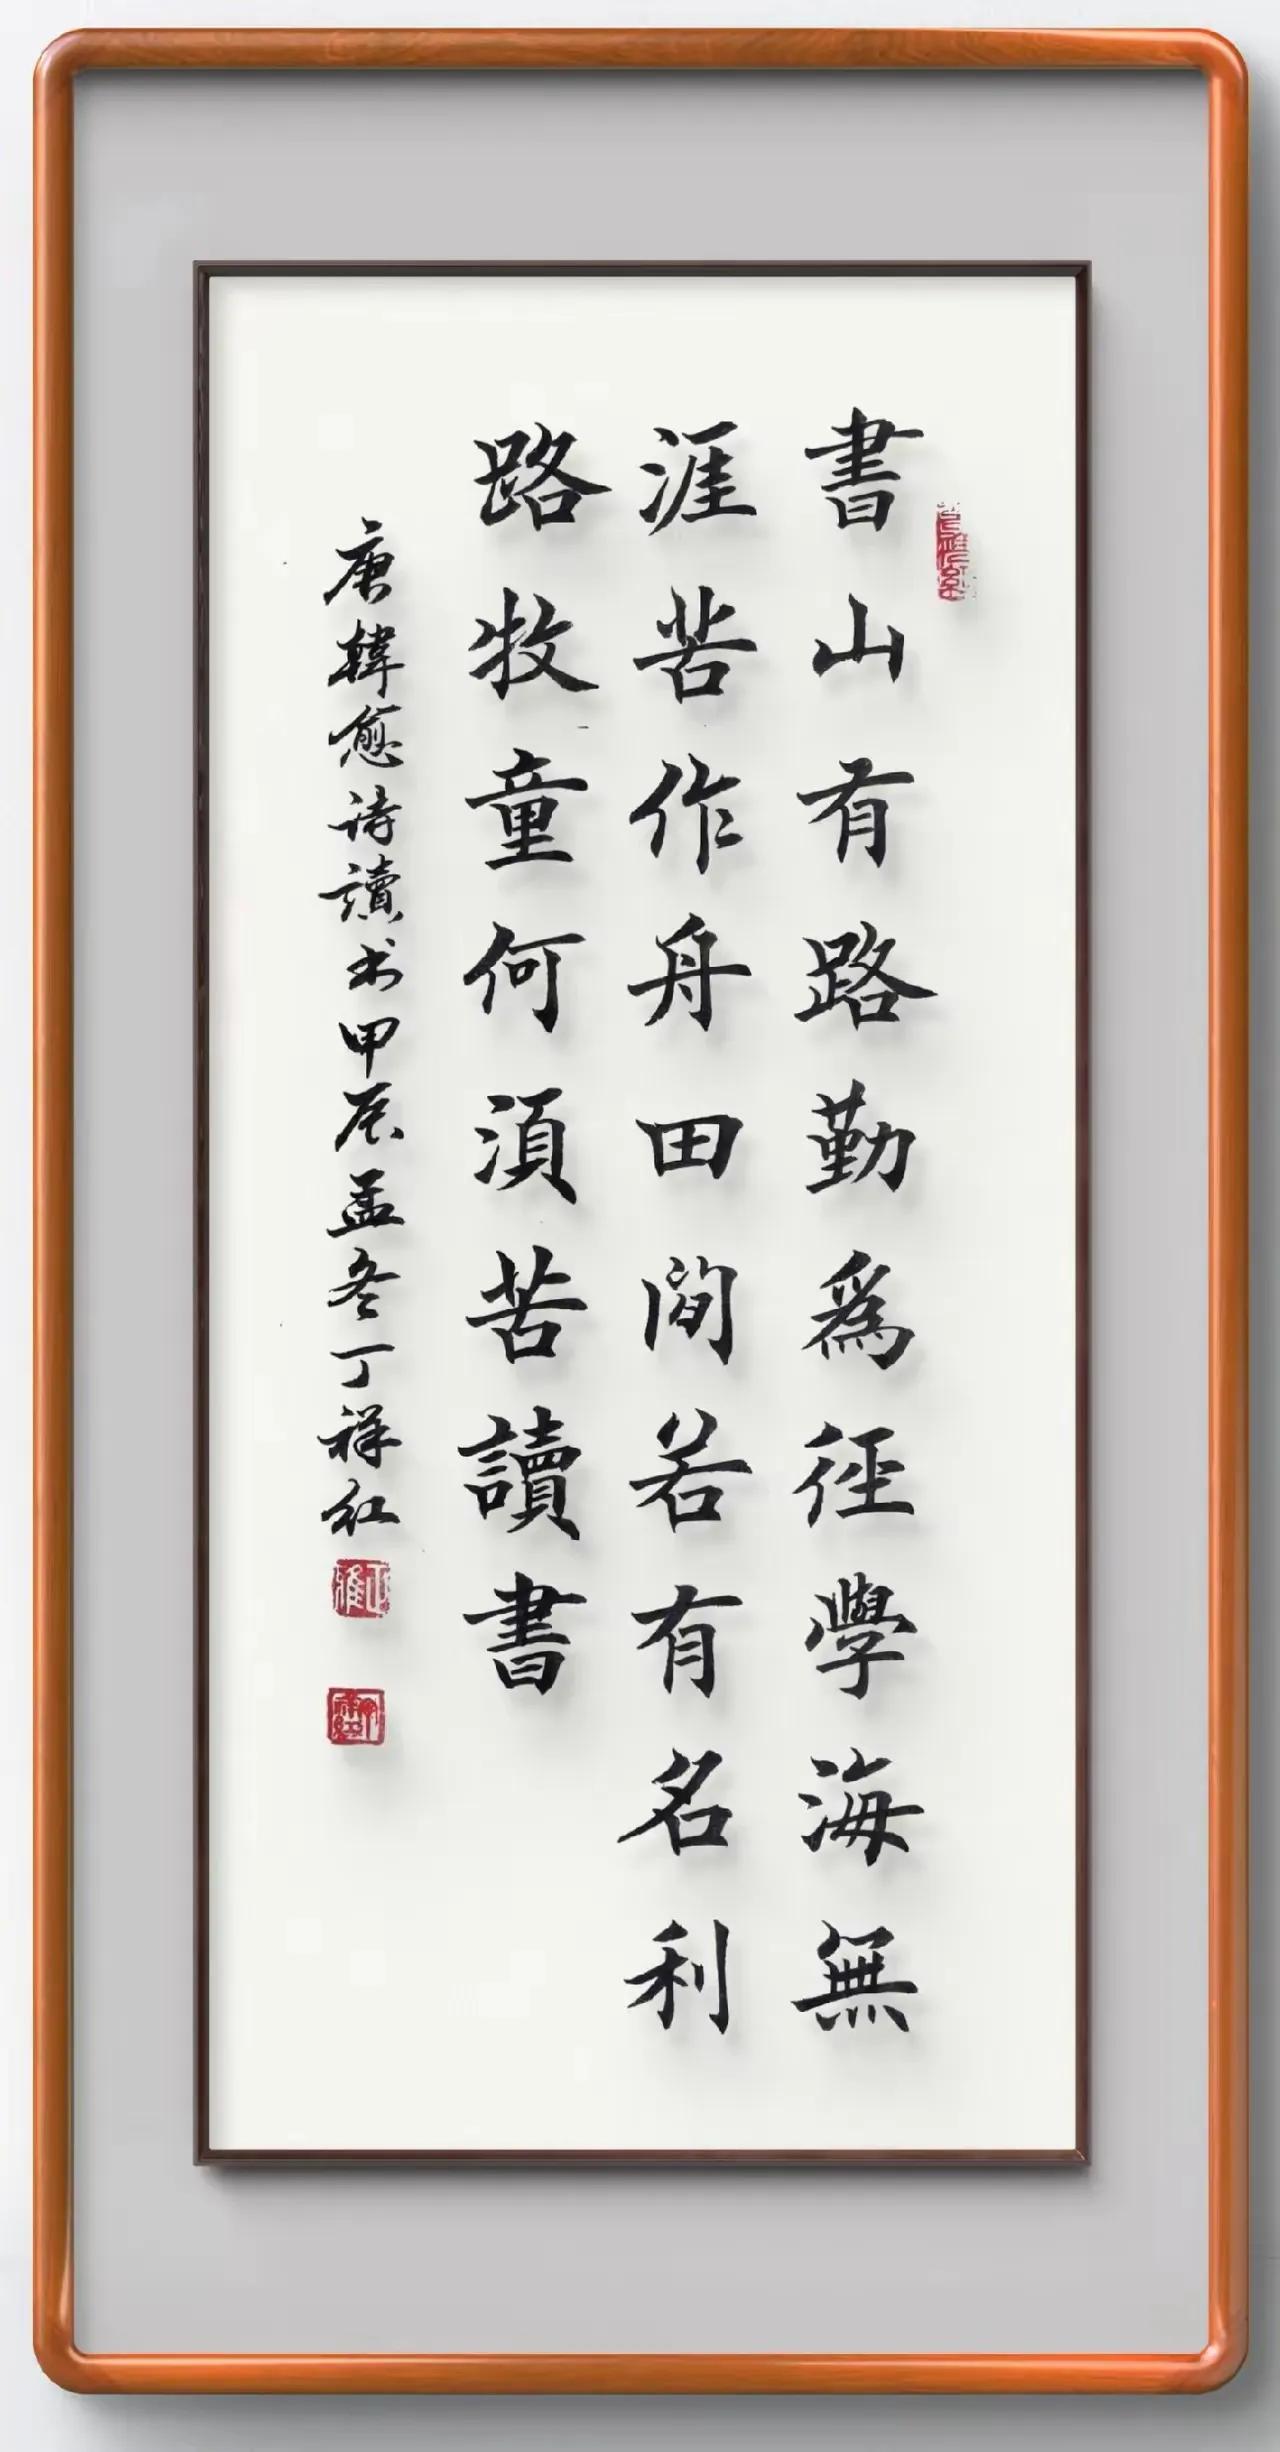 書山有路勤為徑學海無
涯苦作舟田間若有名利
路牧童何須苦讀書
唐韓愈詩讀书甲辰孟冬丁祥红